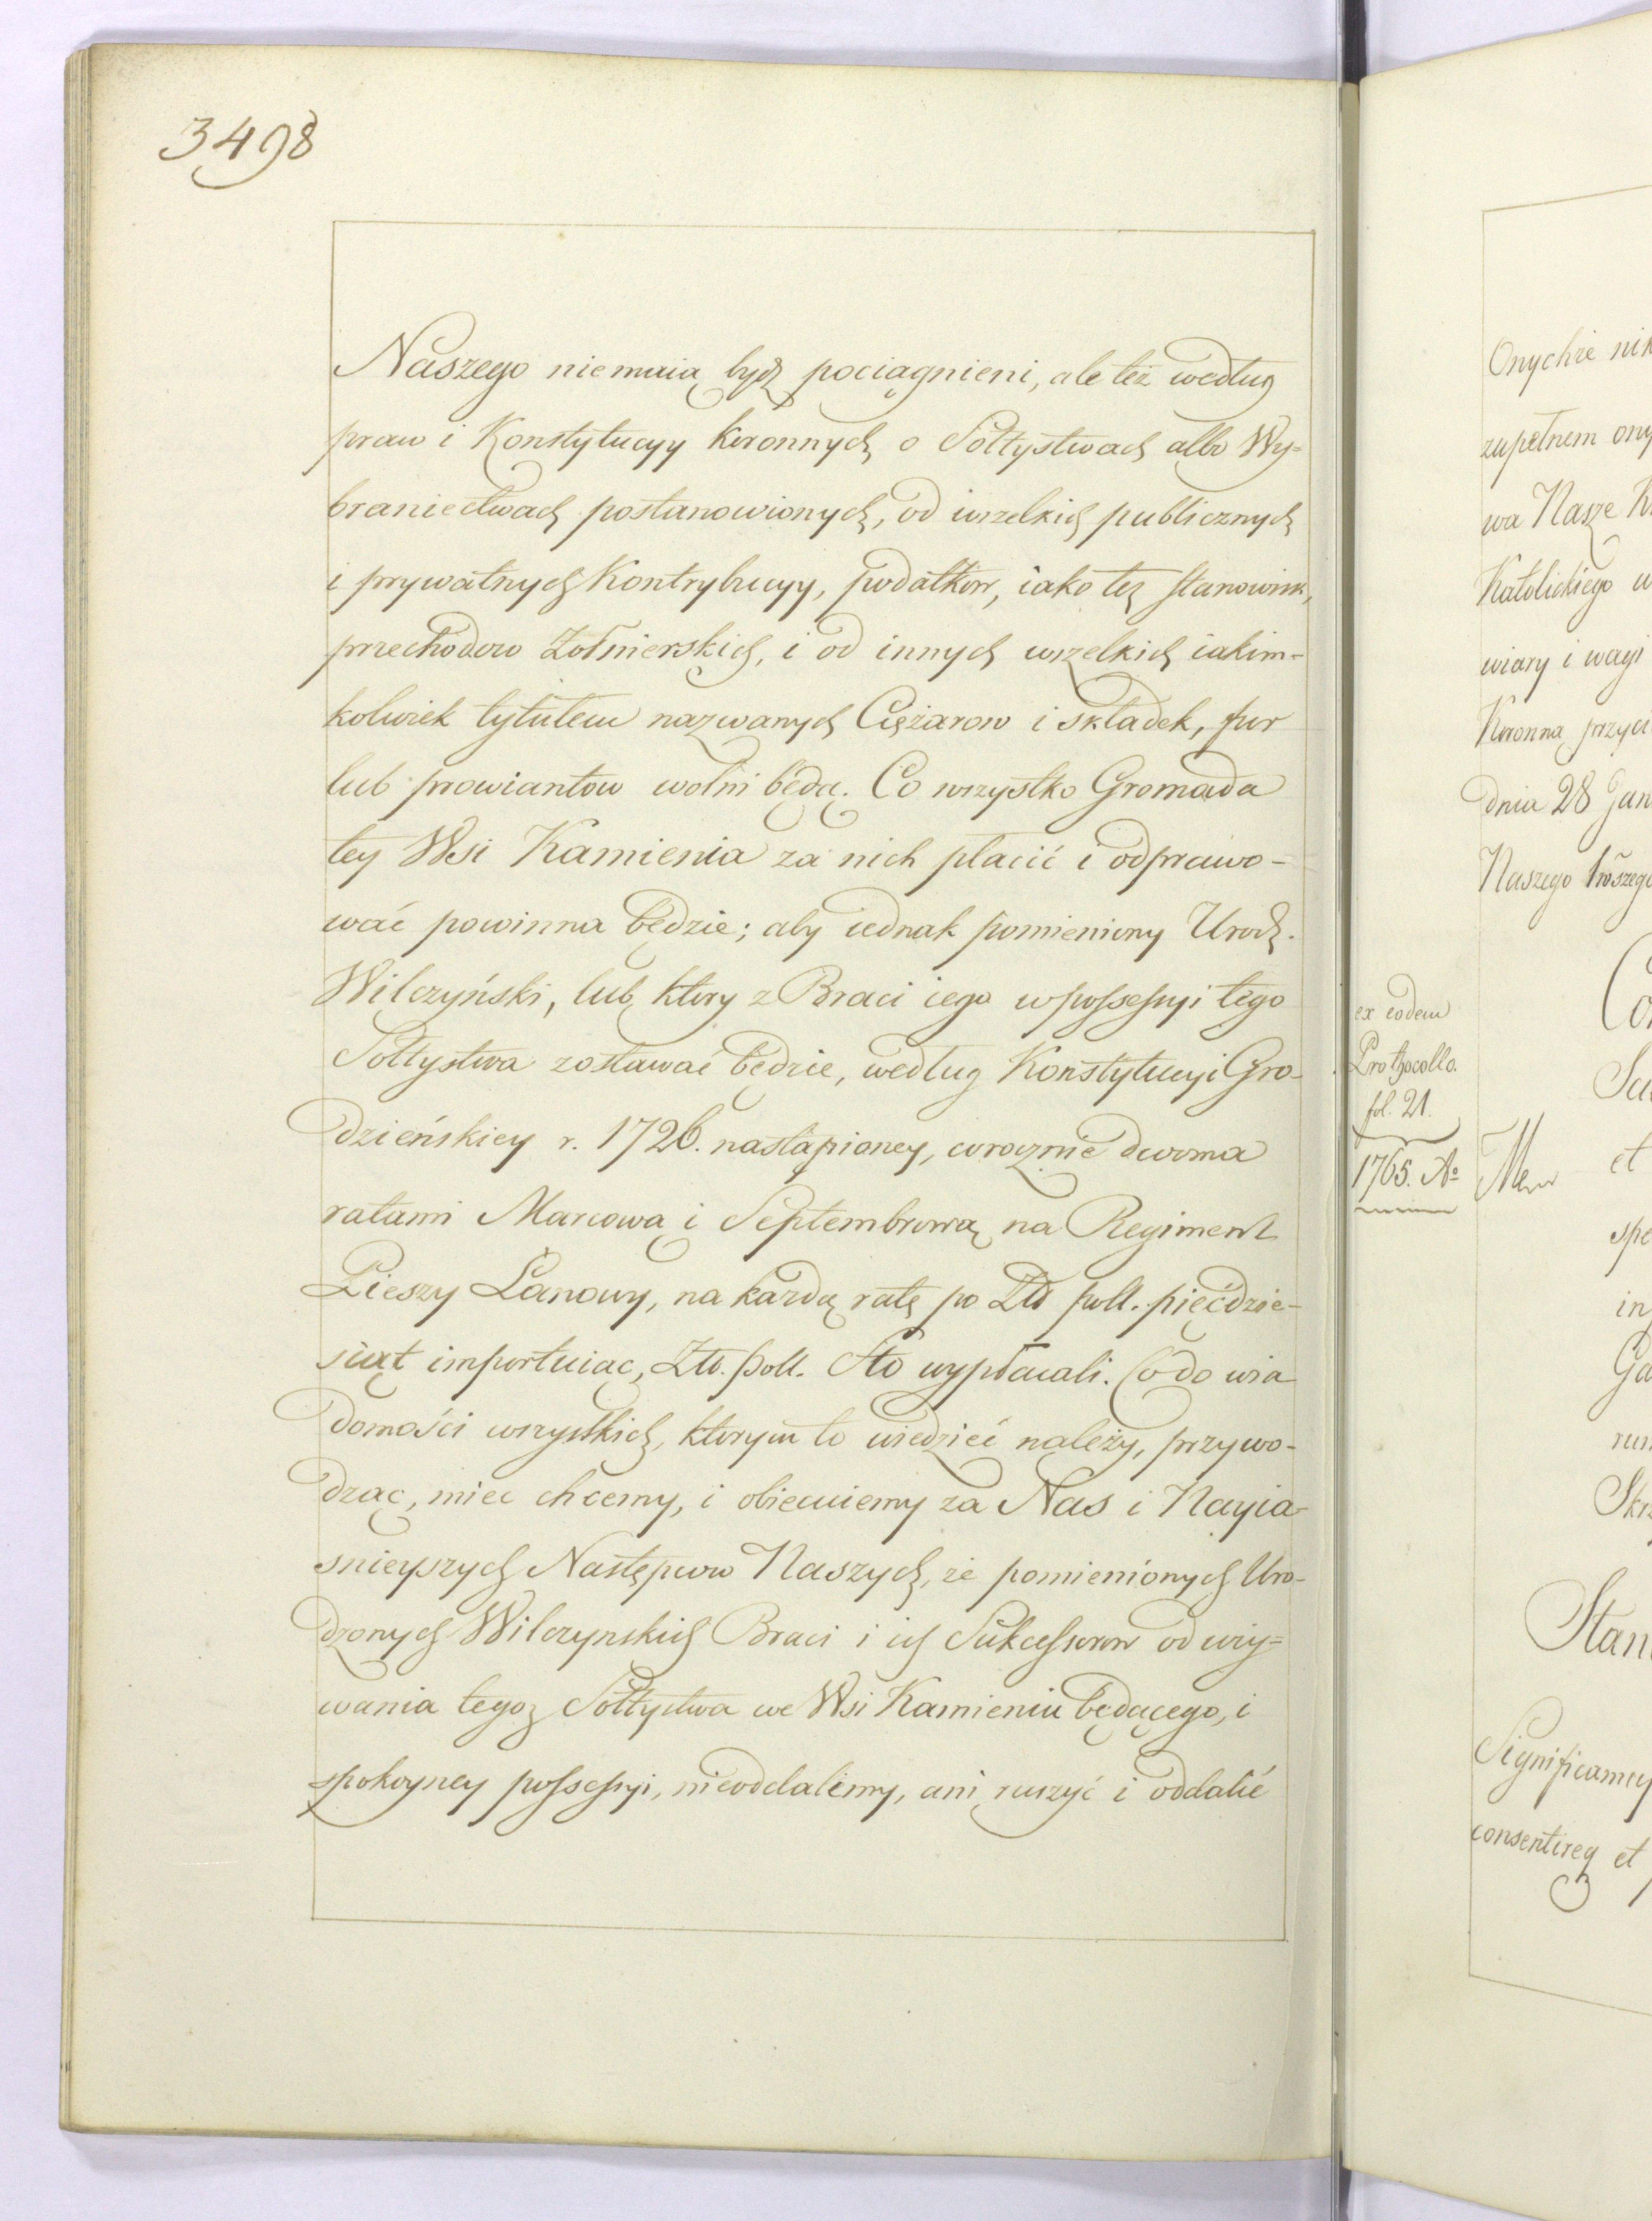 3498
Naszego niemaią bydź pociągnieni, ale też według
praw i Konstytucyy koronnych o Sołtystwach albo Wy=
braniectwach postanowionych, od wszelkich publicznych
i prywatnych Kontrybucyy, podatkow, iako tez stanowisk,
przechodow Żołnierskich, i od innych wszelkich iakim=
kolwiek tytułem nazwanych Ciężarow i składek, fur
lub prowiantow wolni będą. Co wszystko Gromada
tey Wsi Kamienia za nich płacić i odprawo-
wać powinna będzie; aby iednak pomieniony Urodz.
Wilczyński, lub ktory z Braci iego w possessyi tego
Sołtystwa zostawać będzie, według Konstytucyi Gro-
dzieńskiey r. 1726. nastąpioney, corocznie dwoma
ratami Marcową i Septembrową na Regiment
Pieszy Łanowy, na każdą ratę po Złł poll. pięćdzie-
siąt importuiąc, Złł. poll. Sto wypłacali. Co do wia
domości wszystkich, ktorym to wiedzieć należy, przywo-
dząc, miec chcemy, i obiecuiemy za Nas i Nayia-
snieyszych Następcow Naszych, że pomienionych Uro-
dzonych Wilczynskich Braci i ich Sukcessorow od uży=
wania tegoz Sołtystwa we Wsi Kamieniu będącego, i
spokoyney possessyi, nieoddalemy, ani ruszyć i oddalić
Onychże
zupełnem
wa Nasze
Katolickiego
wiary i wagi
Koronną
dnia 28
Naszego
ex eodem
Prothocollo.
fol. 21.
1765. Aº
et
Significamus
consentireq et